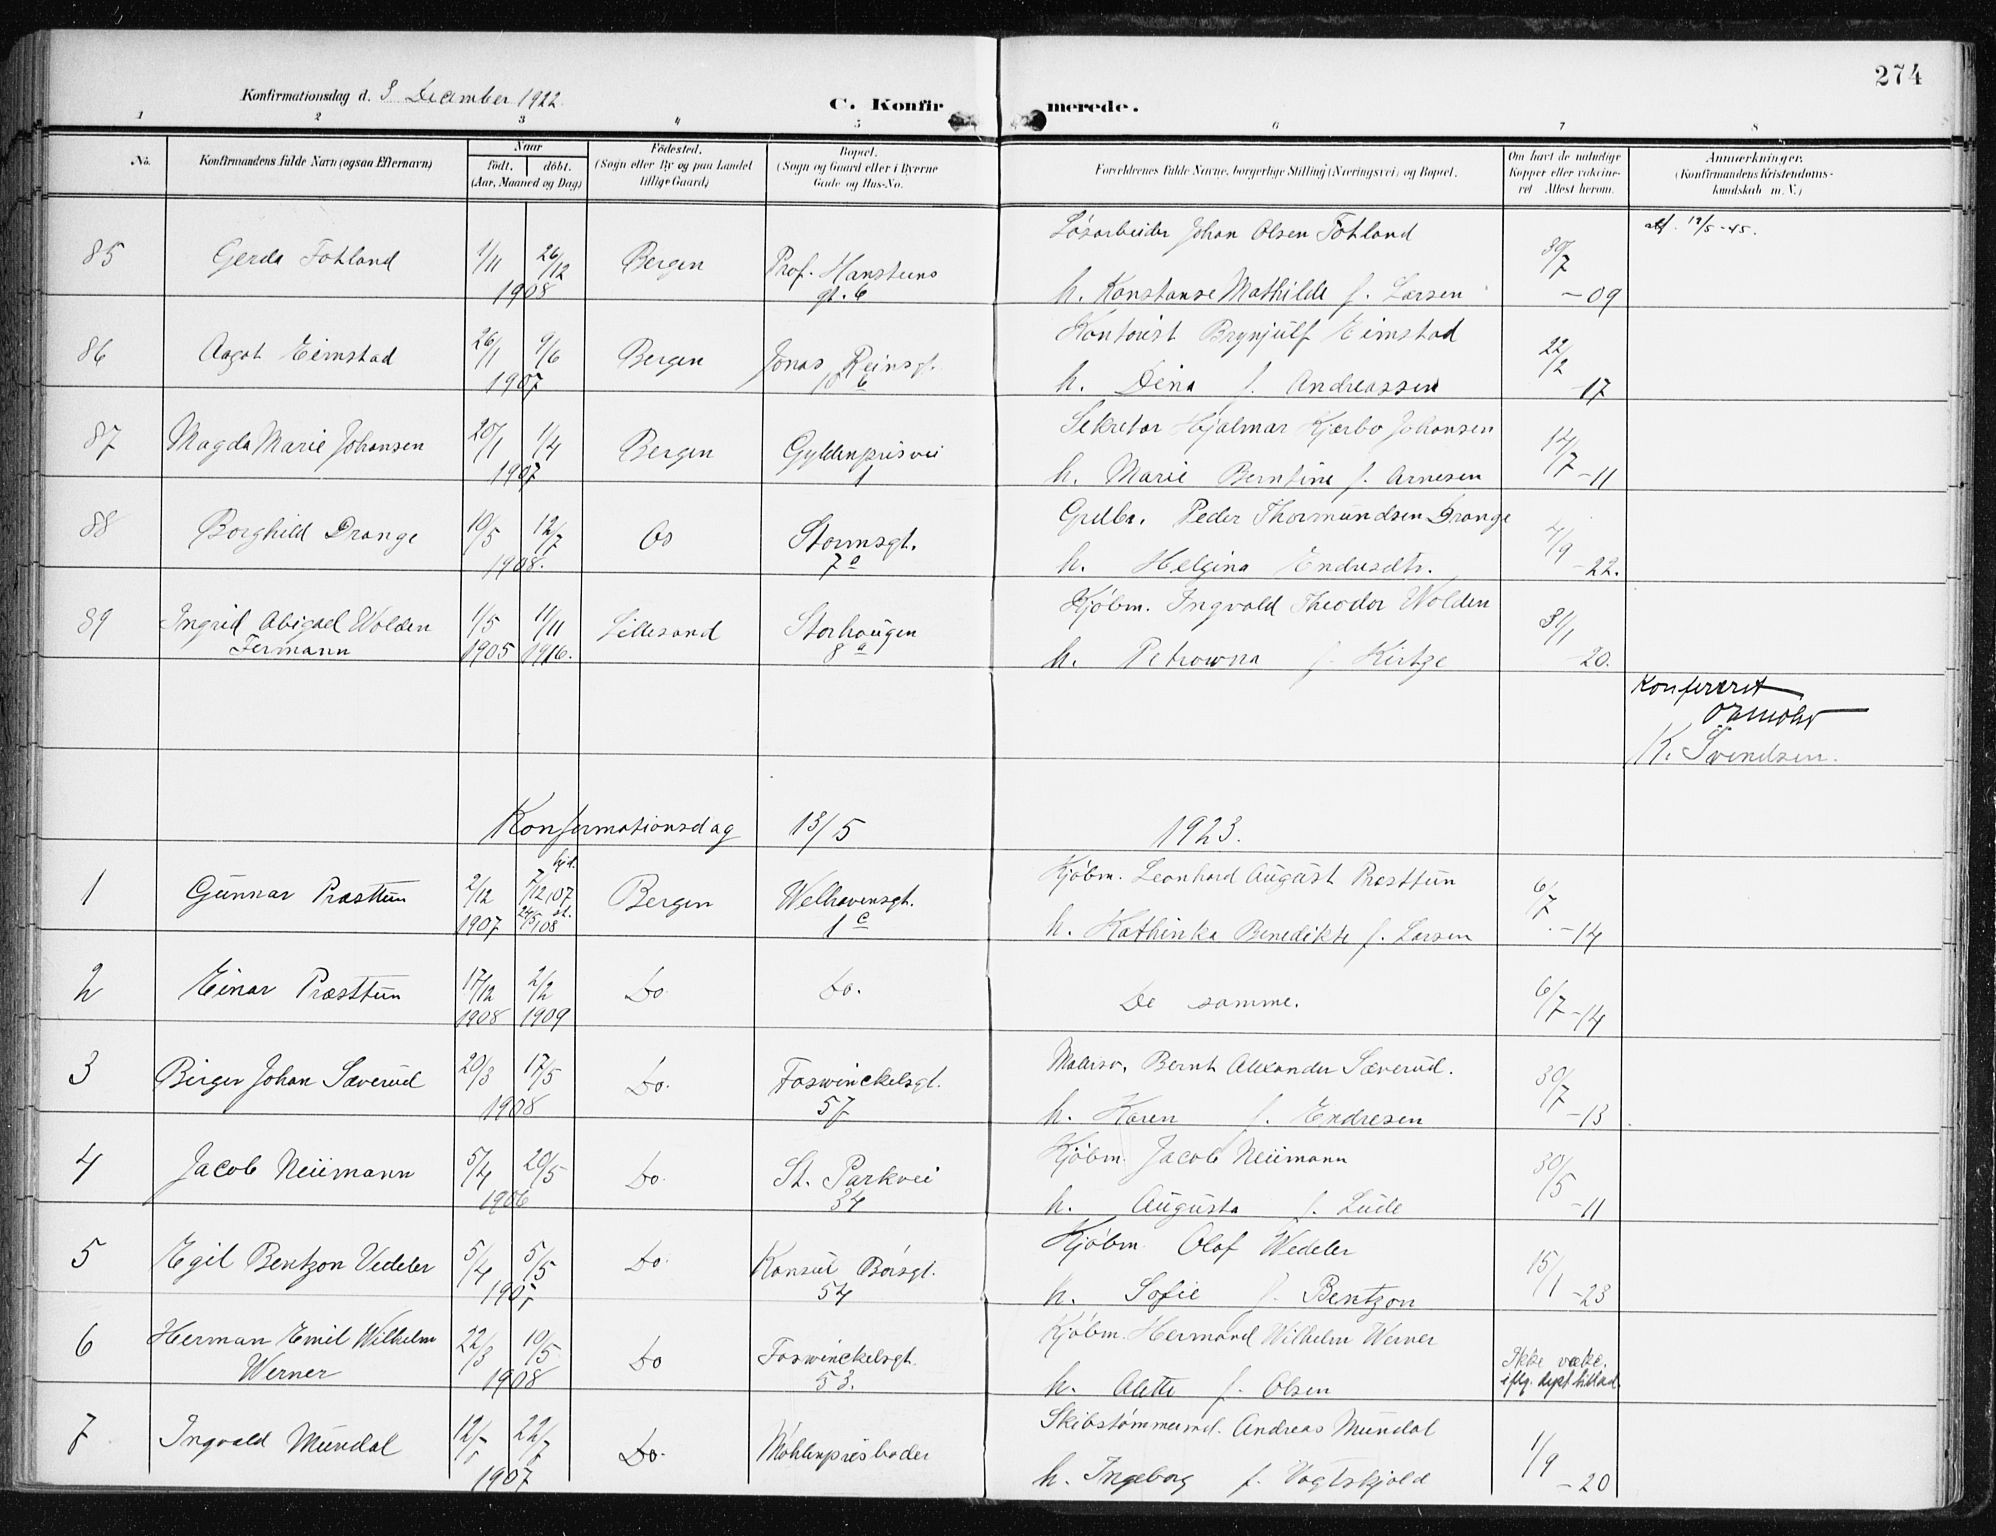 274
Konfirmationsdag d. 3 December 1922.
C. Konfirmerede.
1 2 3 4 5 6 7 8
No.
Konfirmandens fulde Navn (ogsaa Efternavn)
Naar
født. døbt.
(Aar, Maaned og Dag)
Fødested.
(Sogn eller By og paa Landet
tillige Gaard)
Bopæl.
(Sogn og Gaard eller i Byerne
Gade og Hus-No.
Forældrenes fulde Navne, borgerlige Stilling (Næringsvei) og Bopæl.
Om havt de naturlige
Kopper eller vakcine-
ret Attest herom.
Anmærkninger.
(Konfirmandens Kristendoms-
kundskab m. V.)
85 Gerda Fotland 1/11 26/12 1908 Bergen Prof. Hansteens gt. 6
Løsarbeider Johan Olsen Fotland
h. Konstanse Mathilde f. Larsen
30/7 -09
att. 12/5-45.
86 Aagot Eimstad 26/1 9/6 1907 Bergen Jonas Reinsgt. 10 b
Kontorist Brynjulf Eimstad
h. Dina f. Andreassen
22/2 -17
87 Magda Marie Johansen 20/1 1/4 1907 Bergen Gyldenprisvei 1
Sekretær Hjalmar Kjærbo Johansen
h. Marie Berntine f. Arnesen
12/7 -11
88 Borghild Drange 10/5 12/7 1908. Os Stormsgt. 7 a
Grdbr. Peder Thormundsen Drange
h. Helgina Endresdtr.
4/9 -22.
89 Ingrid Abigael Wolden
Fermann
1/5 1905 11/11 1916. Lillesand Storhaugen 8 a
Kjøbm. Ingvald Theodor Wolden
h. Petrowna f.
31/1 -20.
Konfereret
K. Svendsen.
Konfirmationsdag 13/5 1923.
1 Gunnar Præsttun 2/12 1907 hjd. 7/12 07 24/5 08 st. Bergen Welhavensgt. 1 c
Kjøbm. Leonhard August Præsttun
h. Kathinka Benedikte f. Larsen
6/7 -14
2 Einar Præsttun 17/12 1908 2/2 1909 Do. Do.
De samme.
6/7 -14
3 Birger Johan Sæverud 20/3 17/5 1908 Do. Foswinckelsgt. 57
Malersv. Bernt Alexander Sæverud.
h. Karen f. Endresen
30/7 -13.
4 Jacob Neümann 5/4 20/5 1906 Do. St. Parkvei 34
Kjøbm. Jacob Neümann
h. Augusta f. Lude
30/5 -11
5 Egil Bentzon Vedeler 5/4 5/5 Do. Konsul Børsgt. 54
Kjøbm. Olaf Wedeler
h. Sofie f. Bentzon
15/1 -23
6 Herman Emil Wilhelm
Werner
22/3 10/5 1908 Do Foswinckelsgt. 53.
Kjøbm. Hermand Wilhelm Werner
h. Alette f. Olsen
Ikke vakc.
iflg. dept tillad.
7 Ingvald Mundal 1907 Do. Møhlenprisbader
Skibstømmermd. Andreas Mundal
h. Ingeborg f. Vogtskjold
1/9 -20